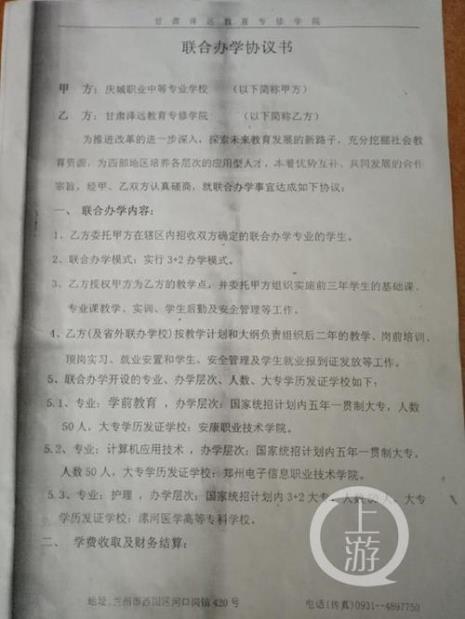 甘肃泽远教育专修学院
联合办学协议书
甲 方：庆城职业中等专业学校 （以下简称甲方）
乙 方：甘肃泽远教育专修学院 （以下简称乙方）
为推进改革的进一步深入，探索未来教育发展的新路子，充分挖掘社会教
育资源，为西部地区培养各层次的应用型人才，本着优势互补、共同发展的合作
宗旨，经甲、乙双方认真磋商，就联合办学事宜达成如下协议：
一、联合办学内容：
1、乙方委托甲方在辖区内招收双方确定的联合办学专业的学生。
2、联合办学模式：实行 3+2 办学模式。
3、乙方授权甲方为乙方的教学点，并委托甲方组织实施前三年学生的基础课、
专业课教学、实训、学生后勤及安全管理等工作。
4、乙方(及省外联办学校)按教学计划和大纲负责组织后二年的教学、岗前培训、
顶岗实习、就业安置和学生、安全管理及学生就业报到证发放等工作。
5、联合办学开设的专业、办学层次、人数、大专学历发证学校如下：
5.1、专业：学前教育，办学层次：国家统招计划内五年一贯制大专，人数
50 人，大专学历发证学校：安康职业技术学院。
5.2、专业：计算机应用技术，办学层次：国家统招计划内五年一贯制大专，
人数 50 人，大专学历发证学校：郑州电子信息职业技术学院。
5.3、专业：护理，办学层次：国家统招计划内 3+2 大专，人数 人，大专
学历发证学校：漯河医学高等专科学校。
二、学费收取及财务结算：
上游
地址：兰州市西固区河口岗镇 420 号 电话(传真)0931--4897750